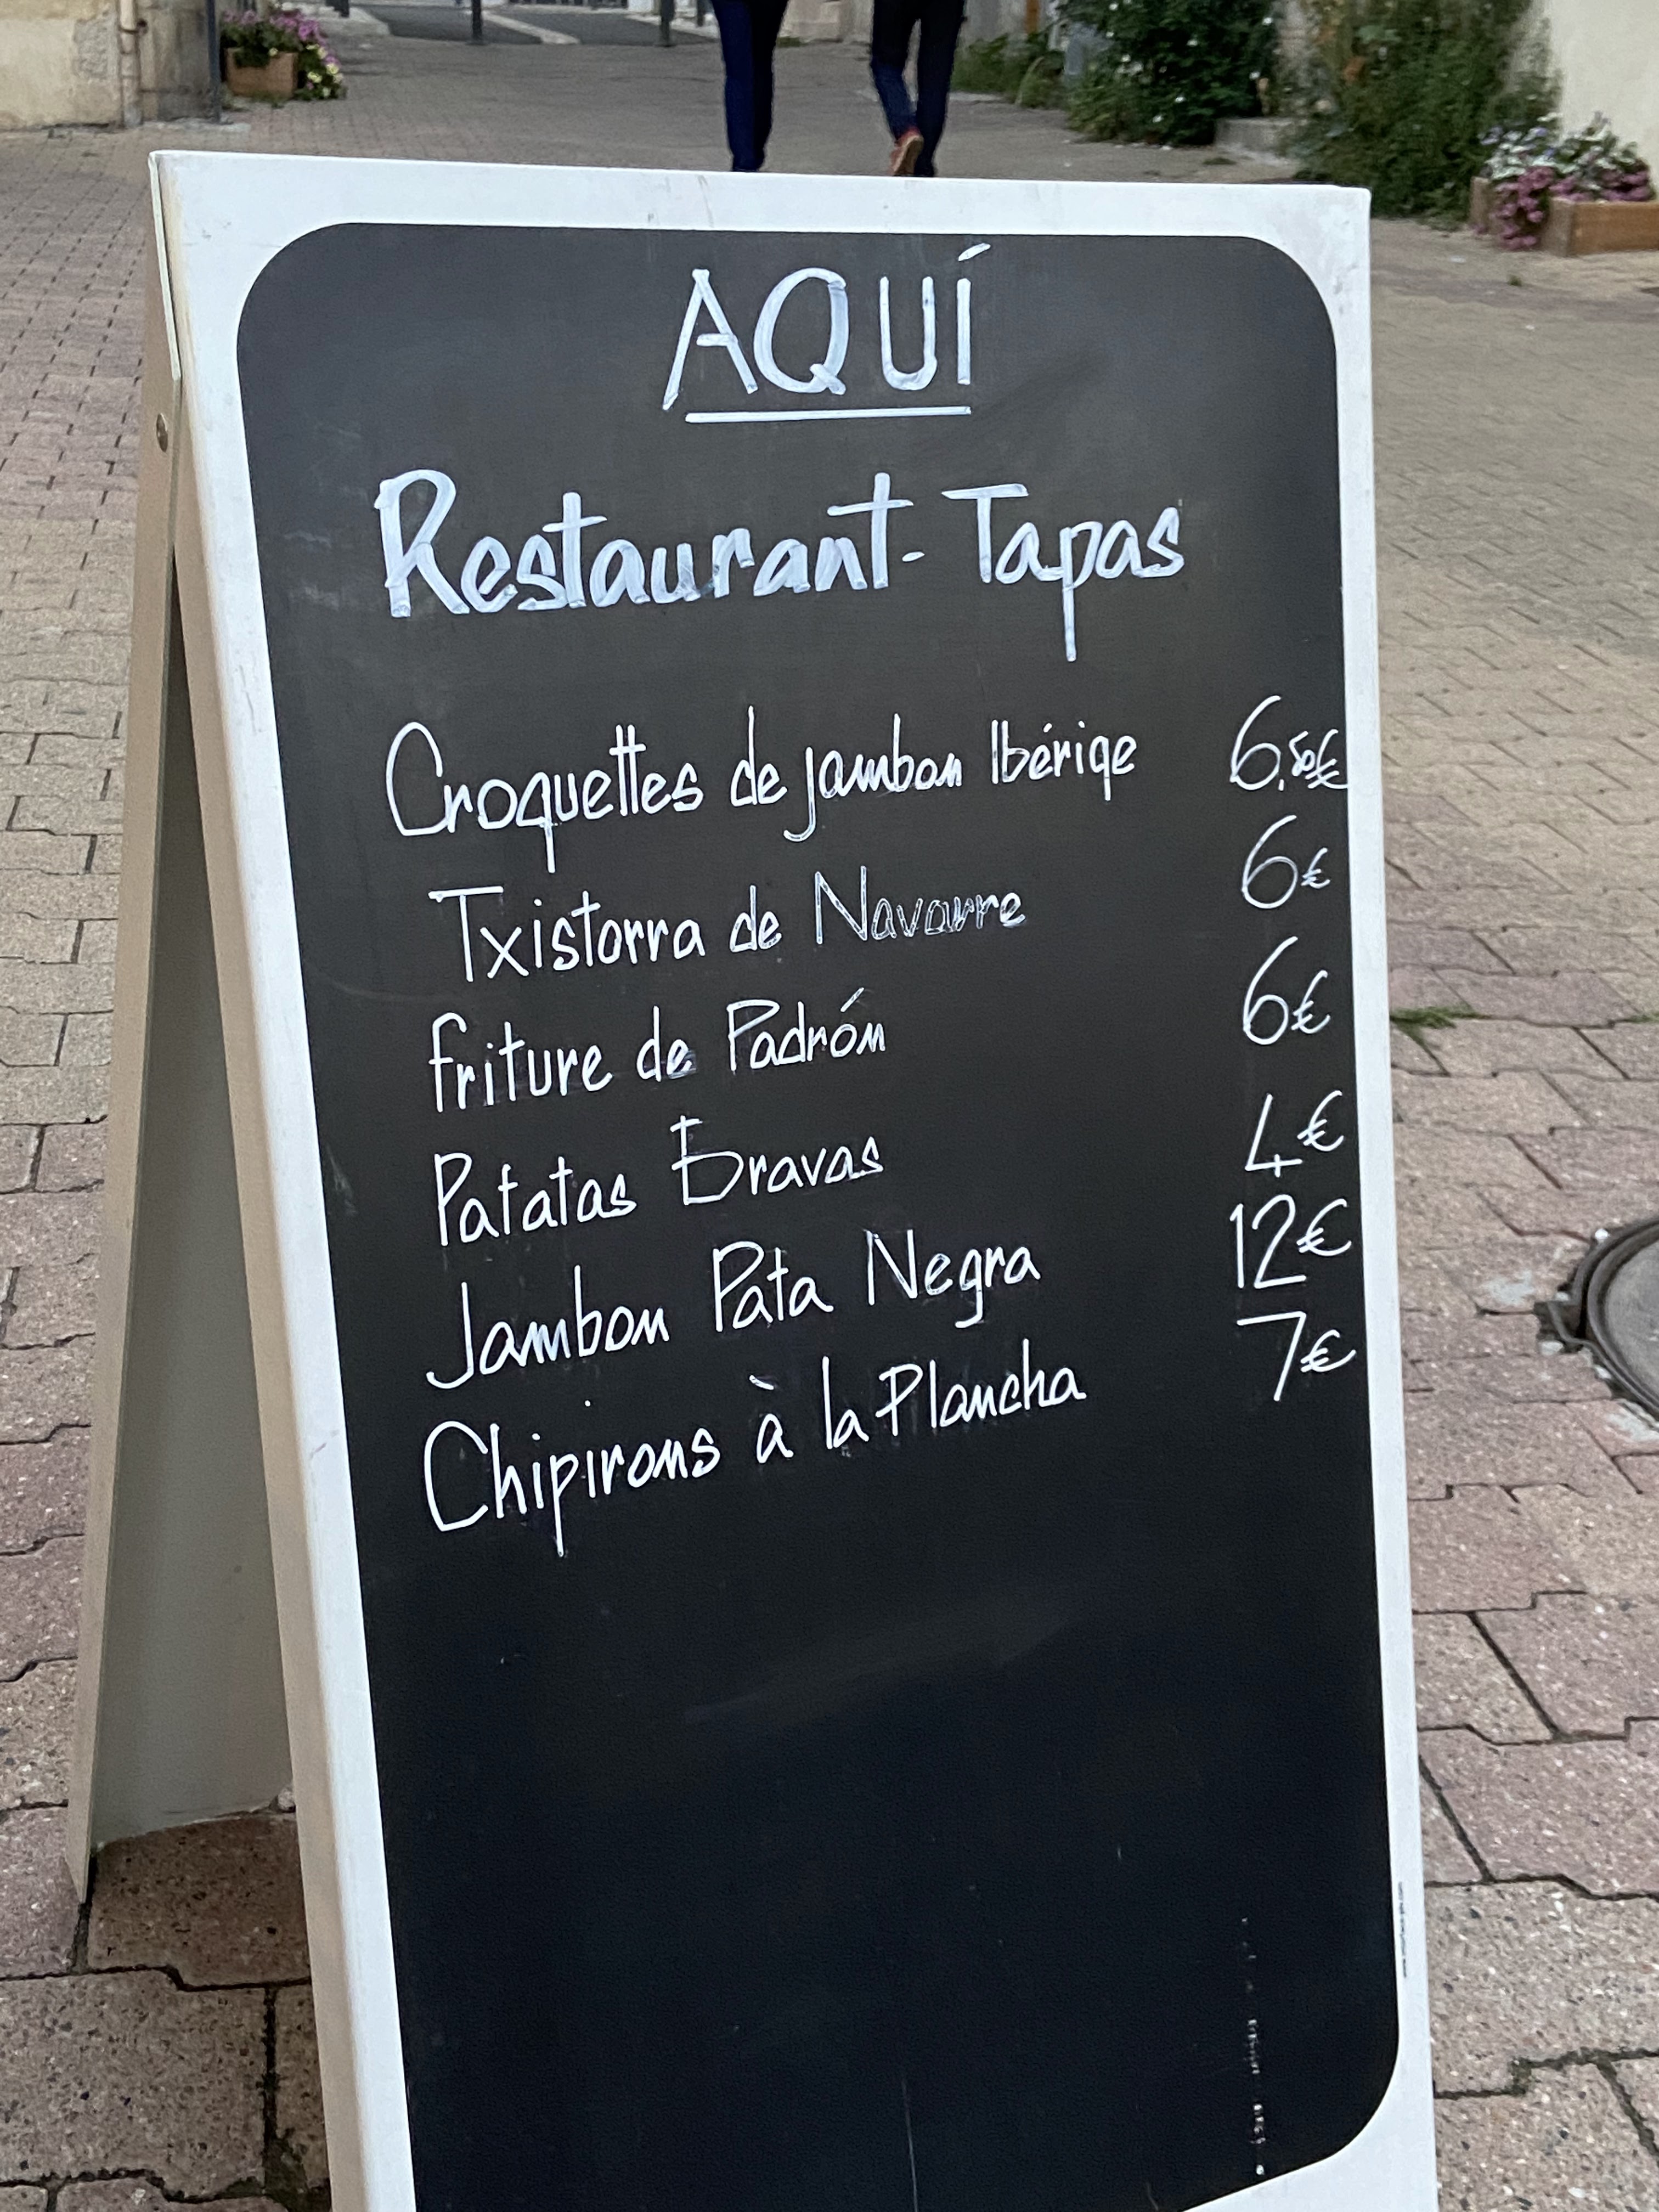 AQUÍ
Restaurant - Tapas
Croquettes de jambon Ibériqe 6,50€
Txistorra de Navarre 6€
friture de Padrón 6€
Patatas bravas 4€
Jambon Pata Negra 12€
Chipirons à la Plancha 7€